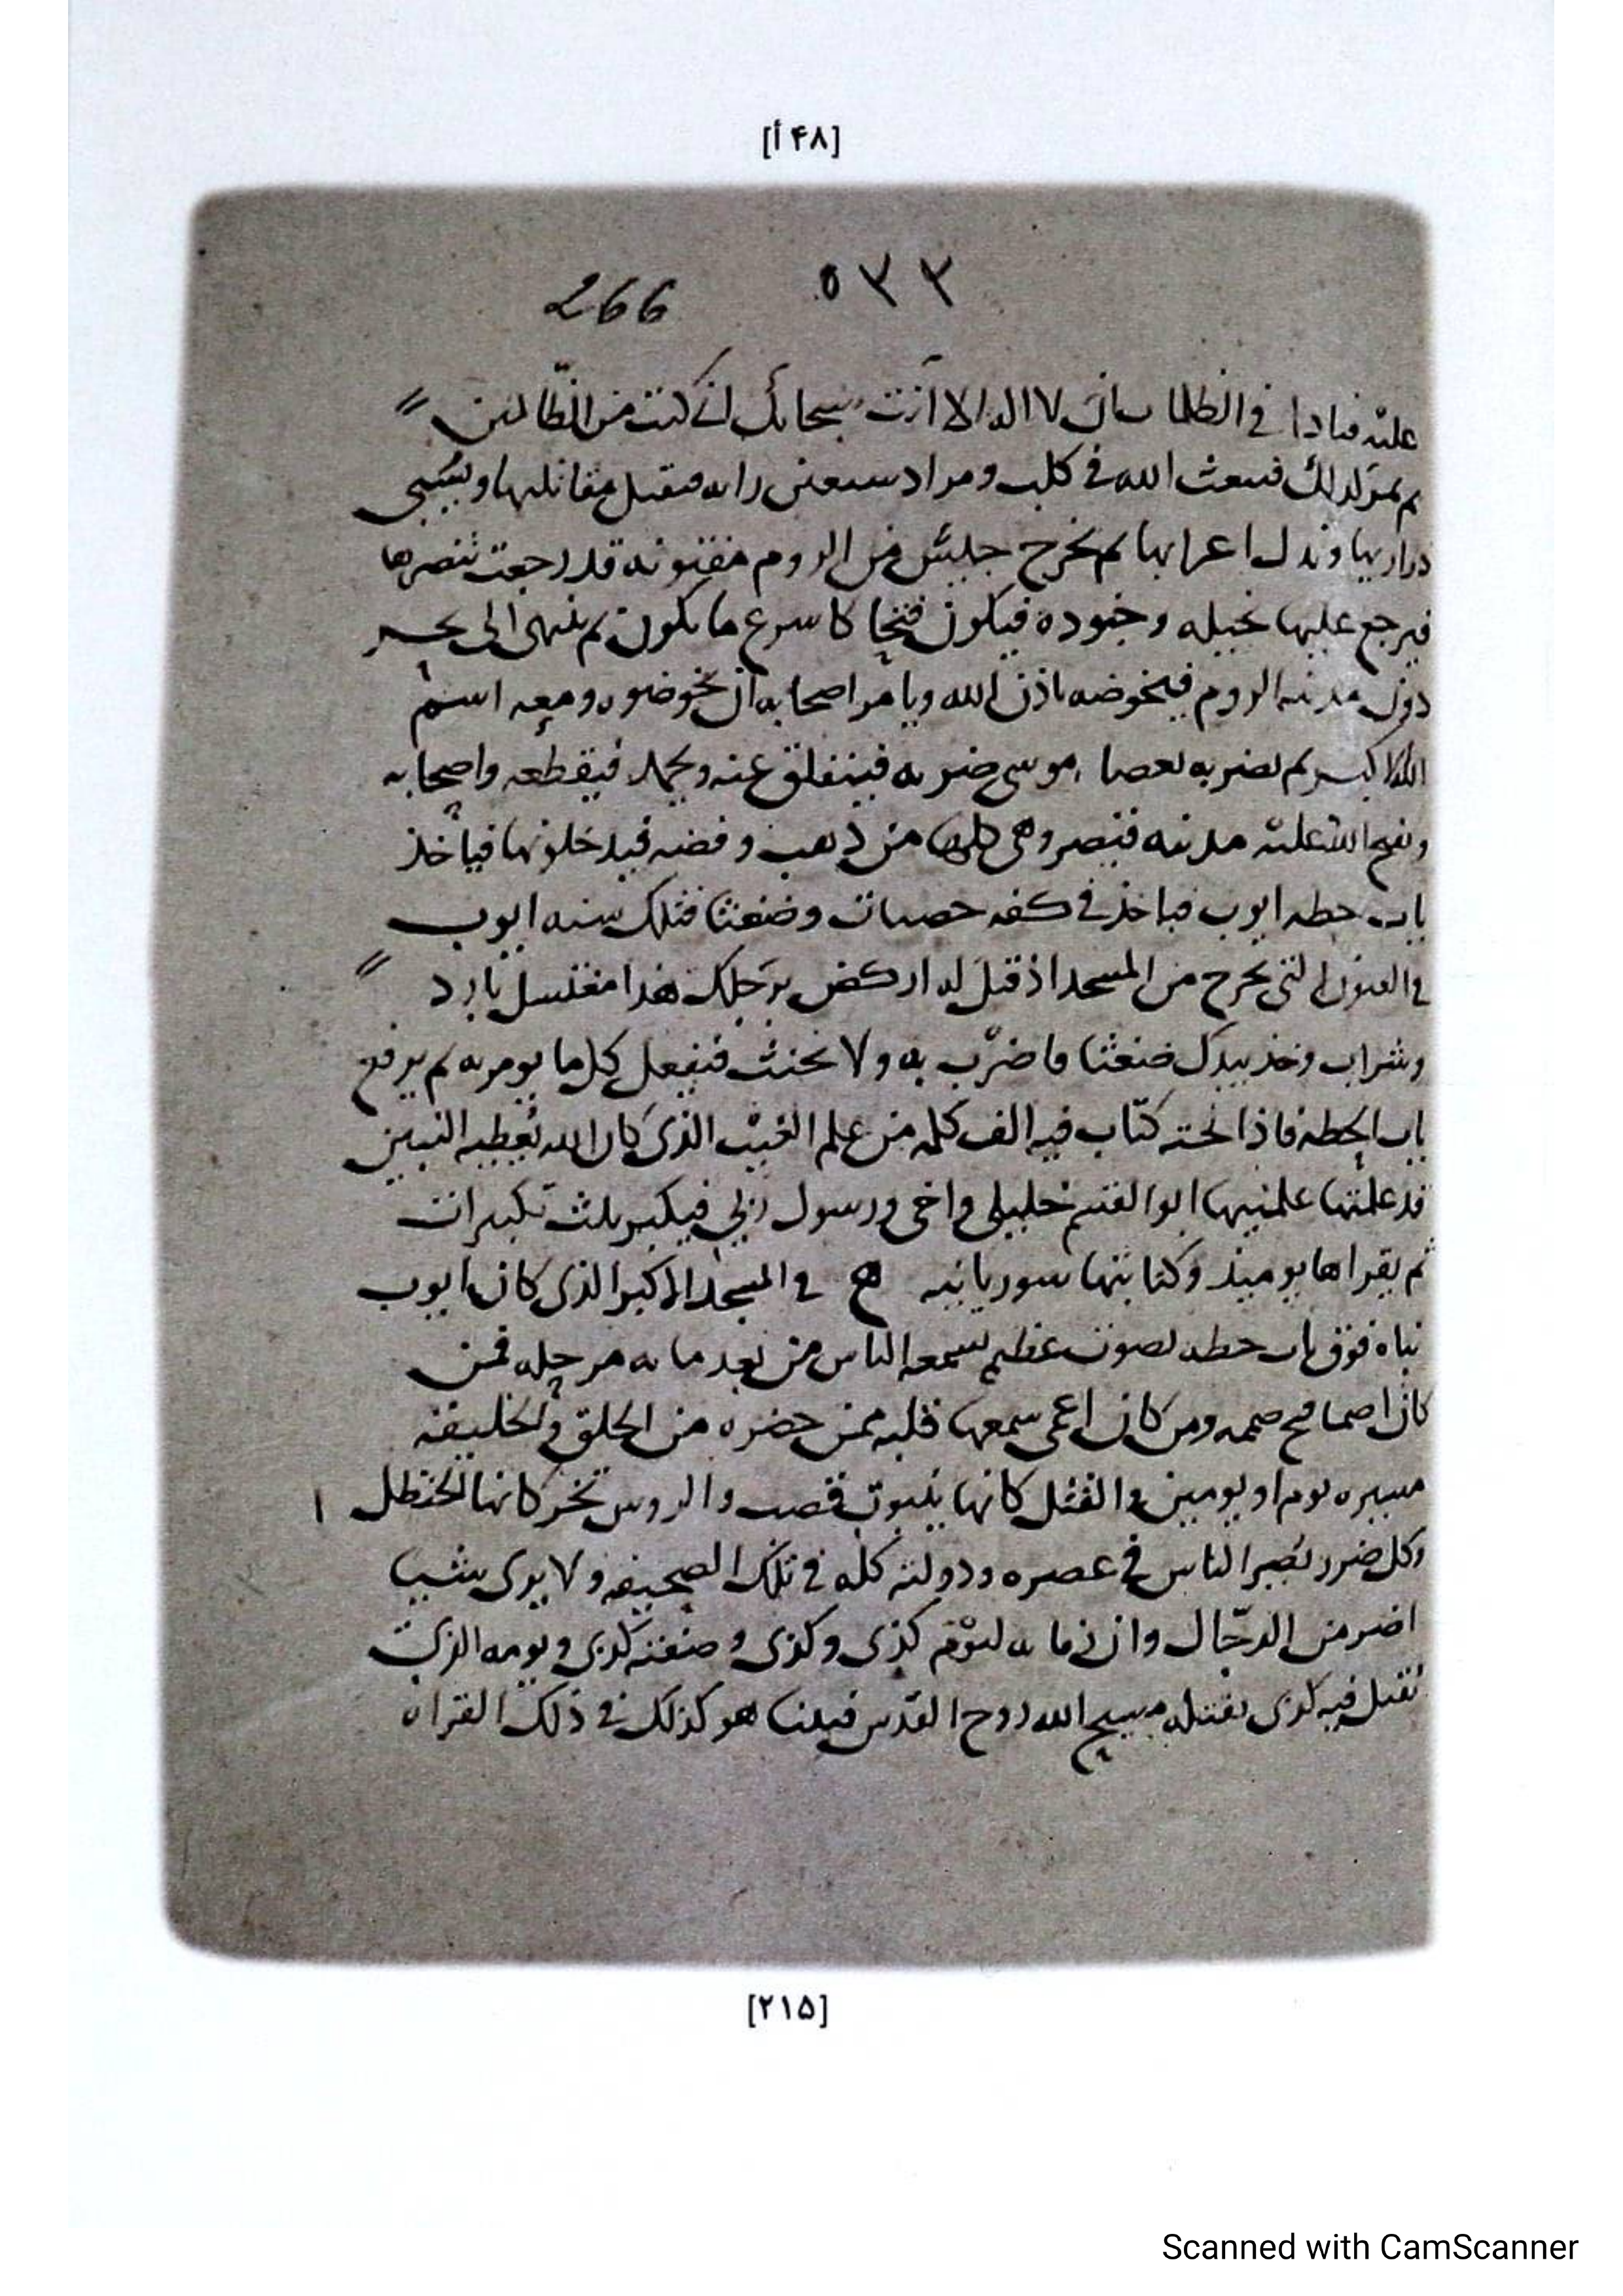 [۴۸أ]
٥٣٣ 266
عليه فنادا في الظلمات ان لا اله الا انت سبحانك اني كنت من الظالمين
ثم كذلك فيبعث الله في كلب ومراد راية فيقتل مقاتليها ويسبي
ذراريها اعرابها ثم يخرج جيش من الروم مفتونه قد رجعت تنصرها
فيرجع عليها بخيله وجنوده فيكون فتحا كاسرع ما يكون ثم ينهى الى بحر
دون مدينه الروم فيخوضه باذن الله ويامر اصحابه ان يخوضوه ومعه اسم
الله الاكبر ثم يضربه بعصا موسى ضربه فينفلق عنه ويجمد فيقطعه واصحابه
ويفتح الله عليه مدينه قيصر وهي كلها من ذهب وفضه فيدخلونها فياخذ
باب حطه ايوب فياخذ في كفه حصيات وضغثا فتلك سنه ايوب
في العيون التي يخرج من المسجد اذ قيل له اركض برجلك هذا مغتسل بارد
وشراب وخذ بيدك ضغثا فاضرب به ولا تحنث فيفعل كل ما يومر به ثم يرفع
باب الحطه فاذا تحته كتاب فيه الف كلمه من علم الغيب الذي كان الله يعطيه النبيين
قد علمتها علمنيها ابو القسم خليلي واخي ورسول ربي فيكبر ثلث تكبيرات
ثم يقراها يوميذ وكتابتها سوريانيه في المسجد الاكبر الذي كان ايوب
بناه فوق باب حطه بصوت عظيم يسمعه الناس من بعد مايه مرحله فمن
كان اصما فتح صممه ومن كان اعمى سمعها قلبه ممن حضره من الخلق والخليقه
مسيره يوم او يومين والقتل كانها بيوت قصب والروس تخر كانها الحنظل
وكل ضرر يصير الناس في عصره ودولته كله في تلك الصحيفه ولا يرى شيا
اضر من الدجال وان زمانه ليوم كذى وكذى وصفته كذى ويومه الذي
يقتل فيه كذى يقتله مسيح الله روح القدس فبينا هو كذلك في ذلك القراه
[۲۱۵]
Scanned with CamScanner